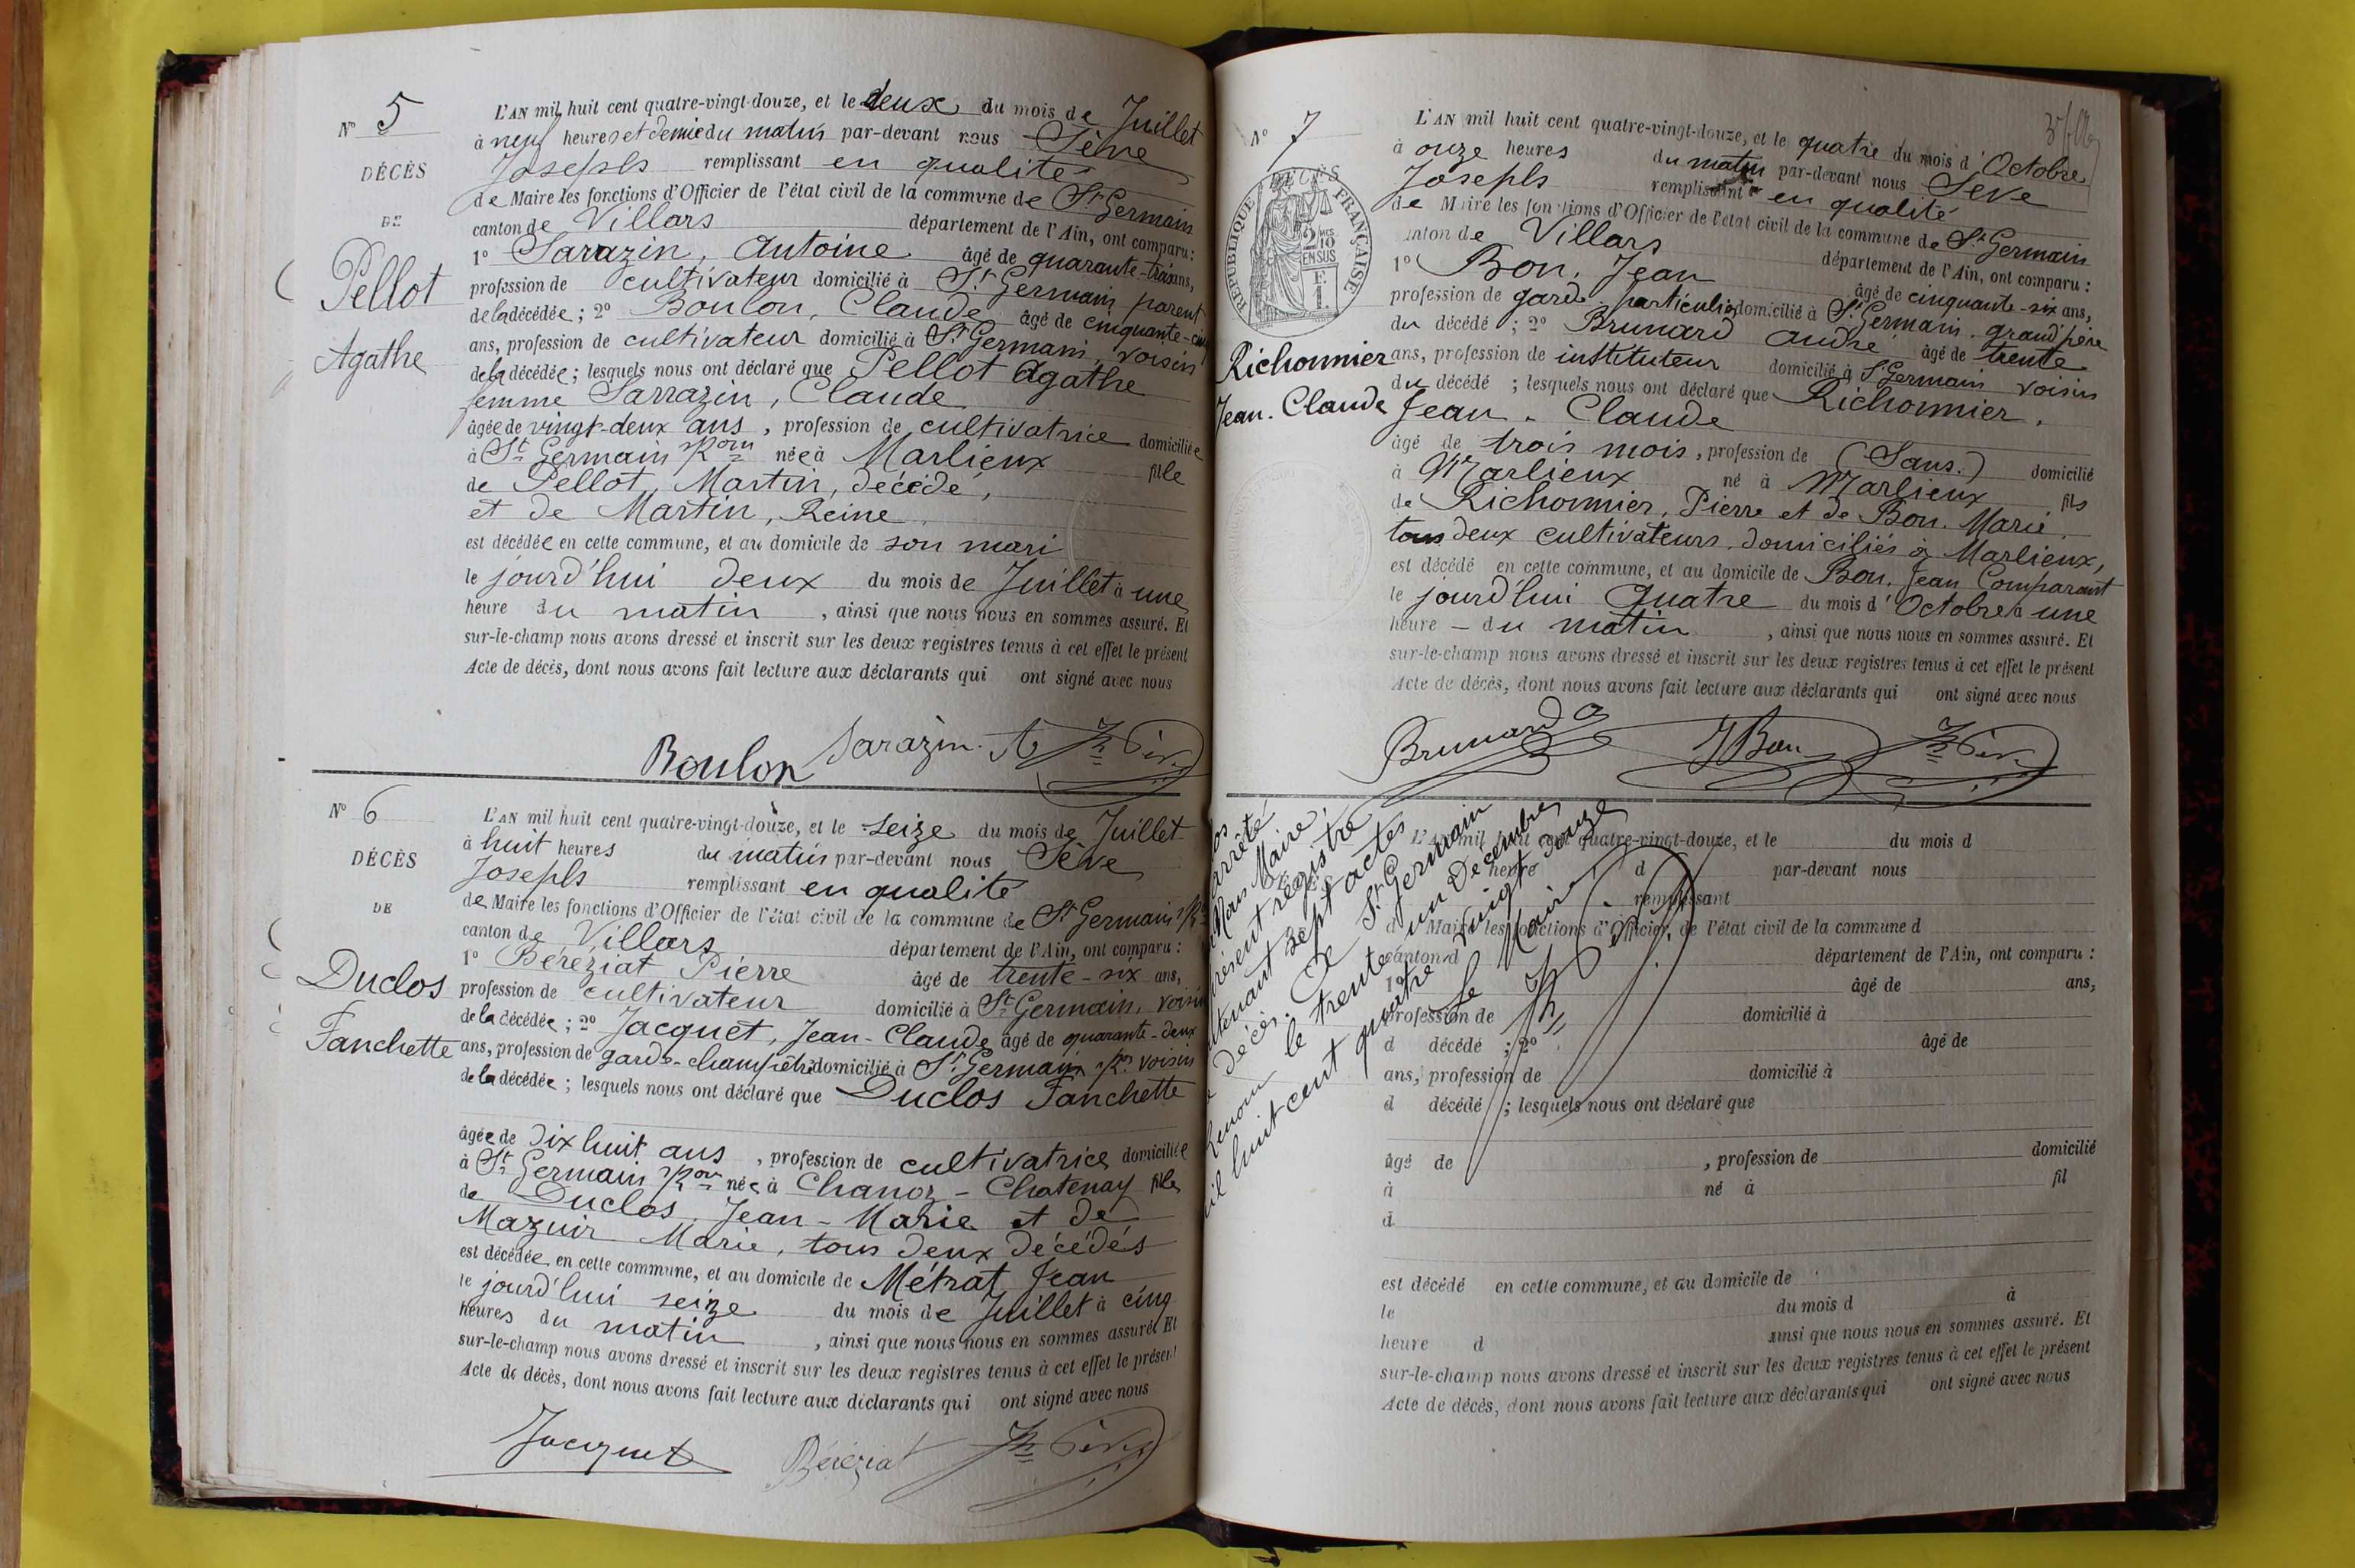 N° 5
DÉCÈS
DE
Pellot
Agathe
L'AN mil huit cent quatre-vingt-douze, et le deux du mois de Juillet
à neuf heures et demie du matin par-devant nous Sève
Joseph remplissant en qualité
de Maire les fonctions d'Officier de l'état civil de la commune de St Germain
canton de Villars département de l'Ain, ont comparu :
1° Sarazin, Antoine âgé de quarante-trois ans,
profession de cultivateur domicilié à St Germain parent
de la décédée ; 2° Boulon, Claude âgé de cinquante-cinq
ans, profession de cultivateur domicilié à St Germain, voisin
de la décédée ; lesquels nous ont déclaré que Pellot Agathe
femme Sarrazin, Claude
âgée de vingt-deux ans, profession de cultivatrice domiciliée
à St Germain née à Marlieux fille
de Pellot, Martin, décédé,
et de Martin, Reine
est décédée en cette commune, et au domicile de son mari
le jourd'hui deux du mois de Juillet à une
heure du matin, ainsi que nous nous en sommes assuré. Et
sur-le-champ nous avons dressé et inscrit sur les deux registres tenus à cet effet le présent
Acte de décès, dont nous avons fait lecture aux déclarants qui ont signé avec nous
Boulon Sarazin A Jh Sève
N° 6
DÉCÈS
DE
Duclos
Fanchette
L'AN mil huit cent quatre-vingt-douze, et le seize du mois de Juillet
à huit heures du matin par-devant nous Sève
Joseph remplissant en qualité
de Maire les fonctions d'Officier de l'état civil de la commune de St Germain
canton de Villars département de l'Ain, ont comparu :
1° Béréziat Pierre âgé de trente-six ans,
profession de cultivateur domicilié à St Germain, voisin
de la décédée ; 2° Jacquet, Jean-Claude âgé de quarante-deux
ans, profession de garde-champêtre domicilié à St Germain voisin
de la décédée ; lesquels nous ont déclaré que Duclos Fanchette
âgée de dix huit ans, profession de cultivatrice domiciliée
à St Germain née à Chanoz-Chatenay fille
de Duclos, Jean-Marie et de
Mazuir Marie, tous deux décédés
est décédée en cette commune, et au domicile de Métrat Jean
le jourd'hui seize du mois de Juillet à cinq
heures du matin, ainsi que nous nous en sommes assuré. Et
sur-le-champ nous avons dressé et inscrit sur les deux registres tenus à cet effet le présent
Acte de décès, dont nous avons fait lecture aux déclarants qui ont signé avec nous
Jacquet Béréziat Jh Sève
N° 7
RÉPUBLIQUE FRANÇAISE
2/10 EN SUS
F.
1.
Richonnier
Jean-Claude
L'AN mil huit cent quatre-vingt-douze, et le quatre du mois d'Octobre
à onze heures du matin par-devant nous Sève
Joseph remplissant en qualité
de Maire les fonctions d'Officier de l'état civil de la commune de St Germain
canton de Villars département de l'Ain, ont comparu :
1° Bon, Jean âgé de cinquante-six ans,
profession de garde particulier domicilié à St Germain, grand'père
du décédé ; 2° Brunard André âgé de trente
ans, profession de instituteur domicilié à St Germain voisin
du décédé ; lesquels nous ont déclaré que Richonnier,
Jean-Claude
âgé de trois mois, profession de (Sans.) domicilié
à Marlieux né à Marlieux fils
de Richonnier, Pierre et de Bon, Marie,
tous deux cultivateurs, domiciliés à Marlieux,
est décédé en cette commune, et au domicile de Bon, Jean Comparant
le jourd'hui Quatre du mois d'Octobre à une
heure du matin, ainsi que nous nous en sommes assuré. Et
sur-le-champ nous avons dressé et inscrit sur les deux registres tenus à cet effet le présent
Acte de décès, dont nous avons fait lecture aux déclarants qui ont signé avec nous
Brunard A J Bon Jh Sève
arrêté
Nous Maire,
présent registre
contenant sept actes
de décès. De St Germain
le trente un Décembre
mil huit cent quatre vingt douze
Le Maire
Jh Sève
L'AN mil huit cent quatre-vingt-douze, et le du mois d
heure d par-devant nous
remplissant
d Maire les fonctions d'Officier de l'état civil de la commune d
canton d département de l'Ain, ont comparu :
1° âgé de ans,
profession de domicilié à
d décédé ; 2° âgé de
ans, profession de domicilié à
d décédé ; lesquels nous ont déclaré que
âgé de , profession de domicilié
à né à fil
d
est décédé en cette commune, et au domicile de
le du mois d à
heure d ainsi que nous nous en sommes assuré. Et
sur-le-champ nous avons dressé et inscrit sur les deux registres tenus à cet effet le présent
Acte de décès, dont nous avons fait lecture aux déclarants qui ont signé avec nous